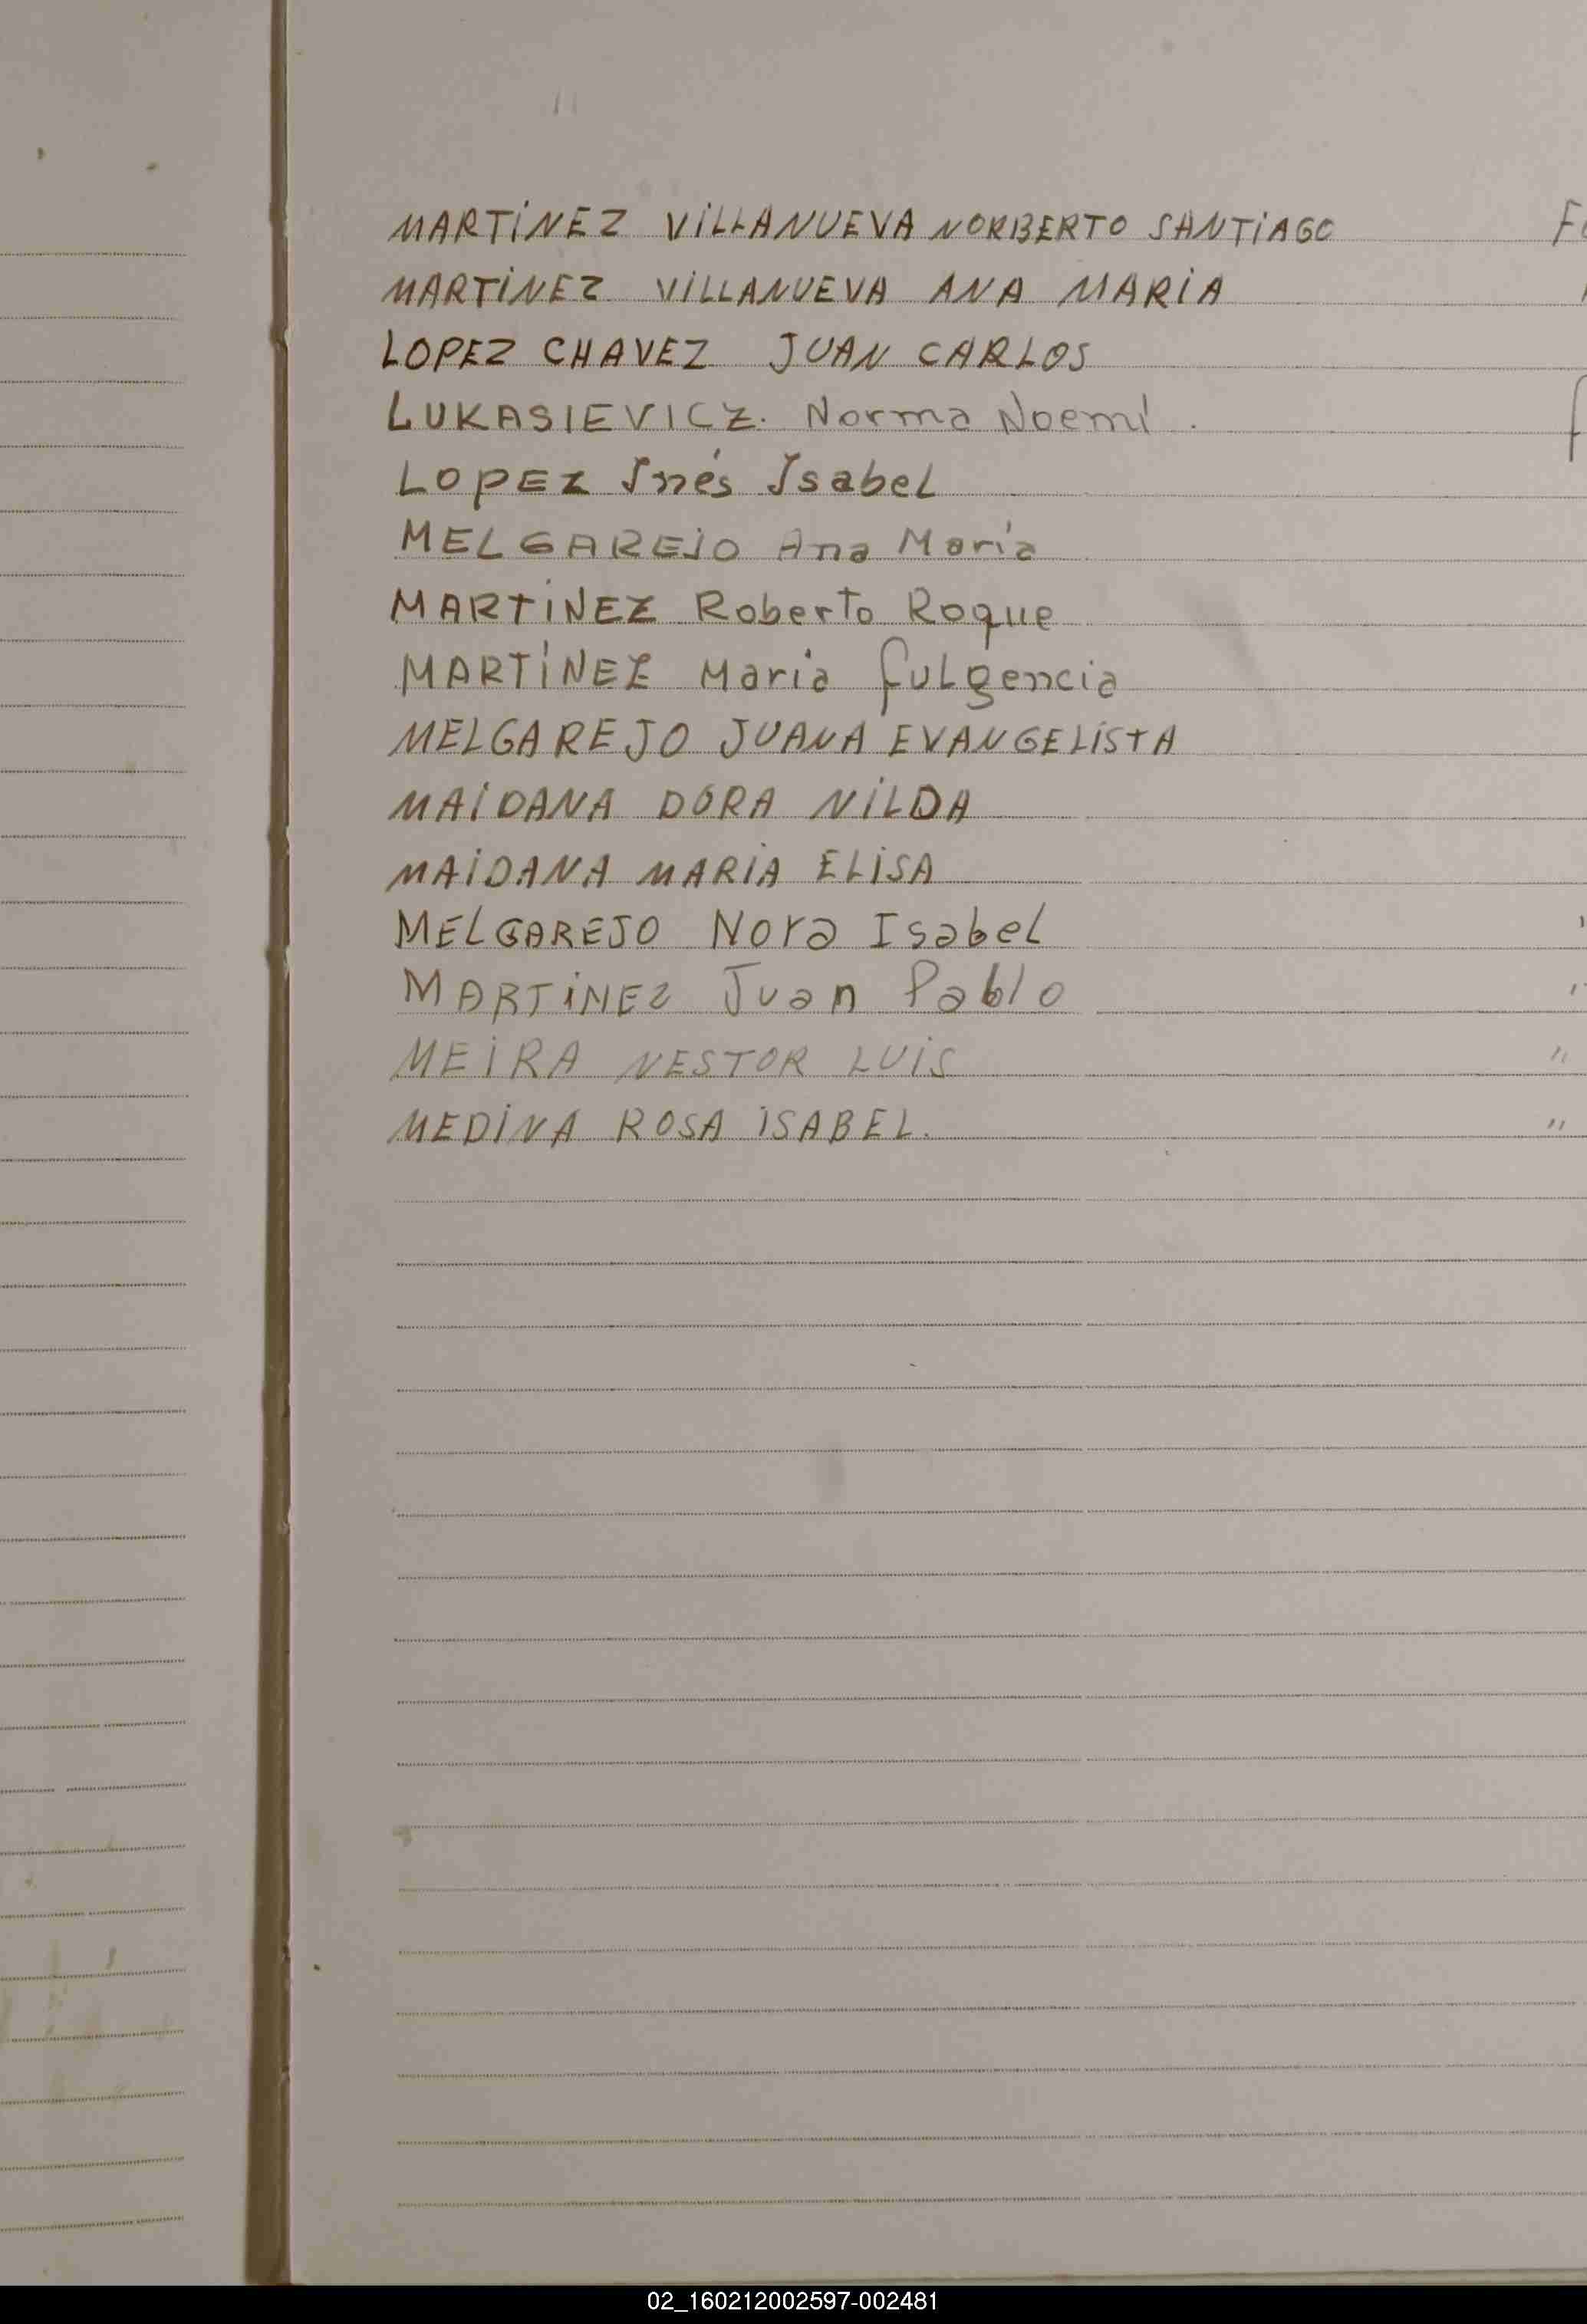 MARTINEZ VILLANUEVA NORBERTO SANTIAGO
MARTINEZ VILLANUEVA ANA MARIA
LOPEZ CHAVEZ JUAN CARLOS
LUKASIEVICZ. Norma Noemí.
LOPEZ Inés Isabel
MELGAREJO Ana María
MARTINEZ Roberto Roque
MARTÍNEZ Maria fulgencia
MELGAREJO JUANA EVANGELISTA
MAIDANA DORA NILDA
MAIDANA MARIA ELISA
MELGAREJO Nora Isabel
MARTINEZ Juan Pablo
MEIRA NESTOR LUIS "
MEDINA ROSA ISABEL. "
02_160212002597-002481